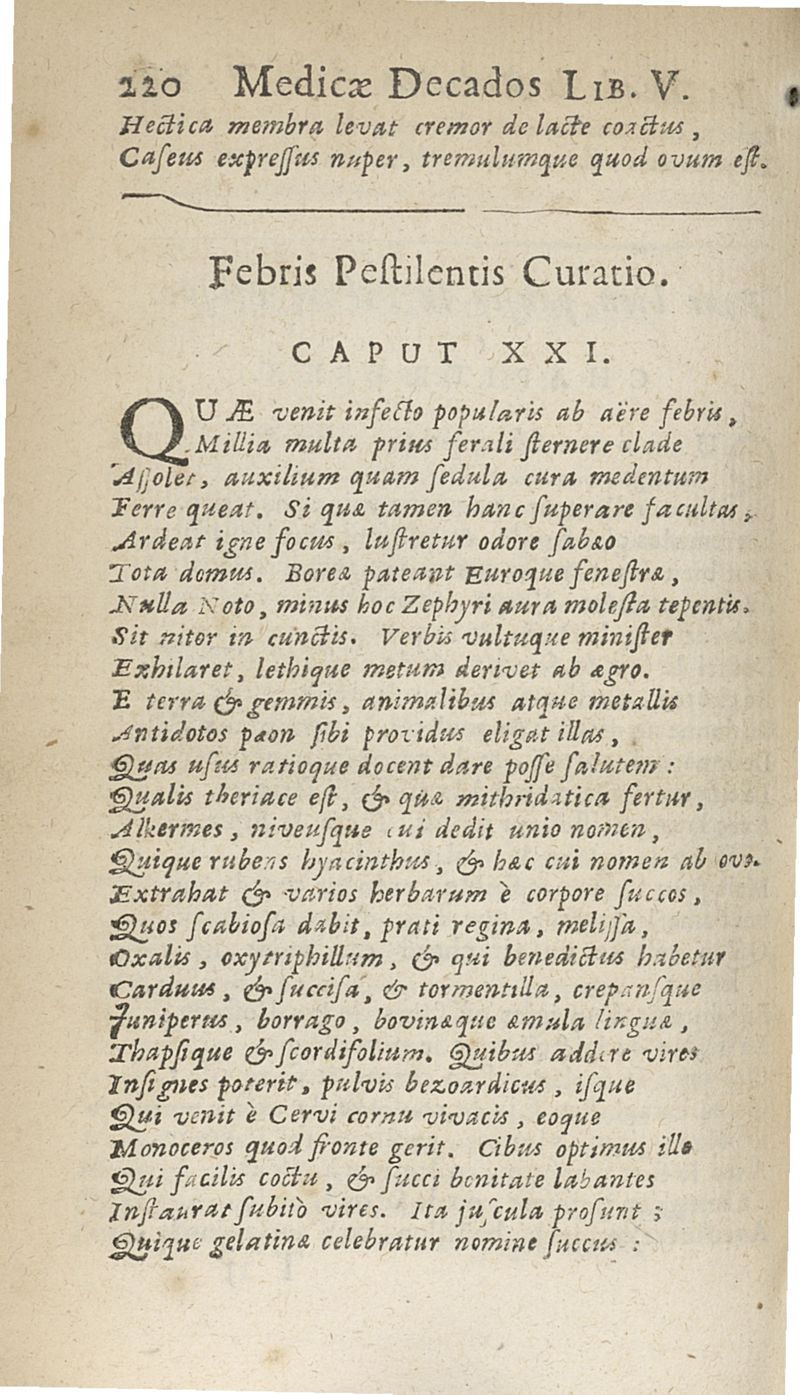 220 Medicæ Decados LIB. V.
Hectica membra levat cremor de lacte coactus,
Caſeus expreſſus nuper, tremulumque quod ovum eſt.
Febris Peſtilentis Curatio.
CAPUT XXI.
QUÆ venit infecto popularis ab aëre febris,
Millia multa prius ferali ſternere clade
Aſſolet, auxilium quam ſedula cura medentum
Ferre queat. Si qua tamen hanc ſuperare facultas,
Ardeat igne focus, luſtretur odore ſabæo
Tota domus. Boreæ pateant Euroque feneſtræ,
Nulla Noto, minus hoc Zephyri aura moleſta tepentis.
Sit nitor in cunctis. Verbis vultuque miniſter
Exhilaret, lethique metum derivet ab ægro.
E terra & gemmis, animalibus atque metallis
Antidotos pæon ſibi providus eligat illas,
Quas uſus ratioque docent dare poſſe ſalutem:
Qualis theriace eſt, & quæ mithridatica fertur,
Alkermes, niveuſque cui dedit unio nomen,
Quique rubens hyacinthus, & hæc cui nomen ab ovo.
Extrahat & varios herbarum è corpore ſuccos,
Quos ſcabioſa dabit, prati regina, meliſſa,
Oxalis, oxytriphillum, & qui benedictus habetur
Carduus, & ſucciſa, & tormentilla, crepanſque
Juniperus, borrago, bovinæque æmula linguæ,
Thapſique & ſcordifolium. Quibus addere vires
Inſignes poterit, pulvis bezoardicus, iſque
Qui venit è Cervi cornu vivacis, eoque
Monoceros quod fronte gerit. Cibus optimus ille
Qui facilis coctu, & ſucci bonitate labantes
Inſtaurat ſubitò vires. Ita juſcula proſunt;
Quique gelatinæ celebratur nomine ſuccus: